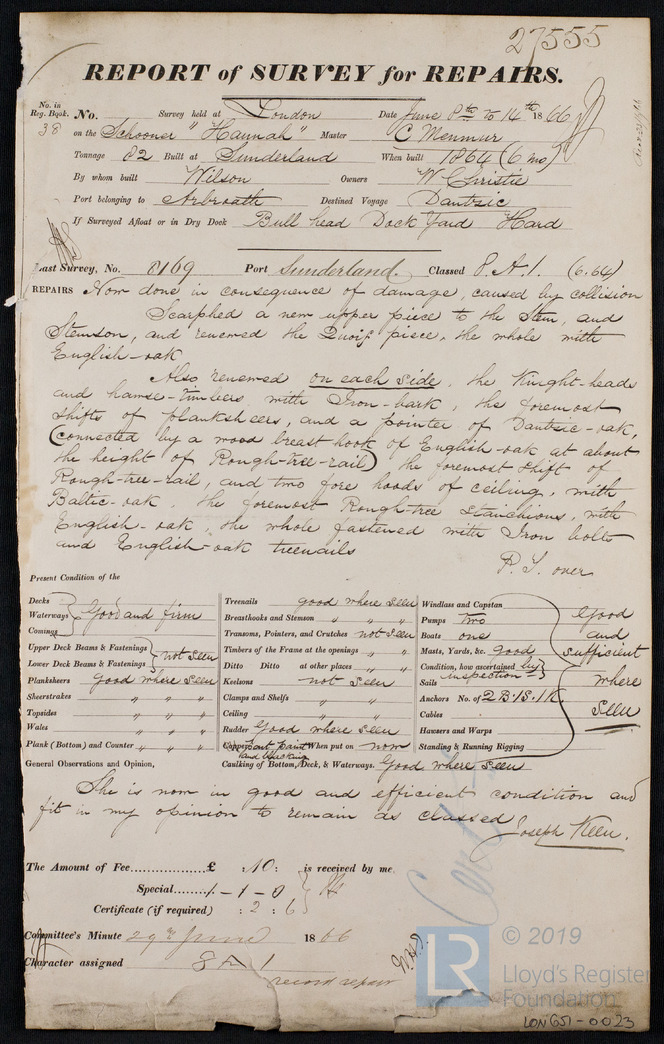 27555
REPORT of SURVEY for REPAIRS.
No. in Reg. Book. 38 No. Survey held at London Date June 8th to 14th 1866
on the Schooner "Hannah" Master C Menmur
Tonnage 82 Built at Sunderland When built 1864 (6 mo)
By whom built Wilson Owners W Christie
Port belonging to Arbroath Destined Voyage Dantzic
If Surveyed Afloat or in Dry Dock Bull head Dock Yard Hard
Last Survey, No. 8169 Port Sunderland. Classed 8. A. 1. (6.64)
REPAIRS Now done in consequence of damage, caused by collision
Scarphed a new upper piece to the Stem, and
Stemson, and renewed the piece, the whole with
English-oak
Also renewed on each side, the Knight-heads
and hawse-timbers with Iron-bark, the foremost
shifts of planksheers, and a pointer of Dantzic-oak,
(connected by a wood breast hook of English-oak at about
the height of Rough-tree-rail) the foremost shift of
Rough-tree-rail, and two fore hoods of ceiling, with
Baltic-oak, the foremost Rough-tree Stanchions, with
English-oak, the whole fastened with Iron bolts
and English-oak treenails
P. T. over
Present Condition of the
Decks
Waterways Good and firm
Comings
Upper Deck Beams & Fastenings
Lower Deck Beams & Fastenings not seen
Planksheers Good where seen
Sheerstrakes " " "
Topsides " " "
Wales " " "
Plank (Bottom) and Counter " " "
Treenails good where seen
Breasthooks and Stemson " " "
Transoms, Pointers, and Crutches not seen
Timbers of the Frame at the openings " "
Ditto Ditto at other places " "
Keelsons not seen
Clamps and Shelfs " "
Ceiling " "
Rudder Good where seen
Copper paint and blacking When put on now
Caulking of Bottom, Deck, & Waterways. Good where seen
Windlass and Capstan Good
Pumps Two
Boats one and
Masts, Yards, &c. good sufficient
Condition, how ascertained by
Sails inspection where
Anchors No. of 2 B. 1 S. 1 K. seen
Cables
Hawsers and Warps
Standing & Running Rigging
General Observations and Opinion,
She is now in good and efficient condition and
fit in my opinion to remain as classed
Joseph Keen.
The Amount of Fee................£ : 10 : is received by me
Special......... 1 - 1 - 0
Certificate (if required) : 2 : 6
Committee's Minute 29th June 1866
Character assigned 8 A 1
record repair
© 2019
LR Lloyd's Register
Foundation
LON651-0023